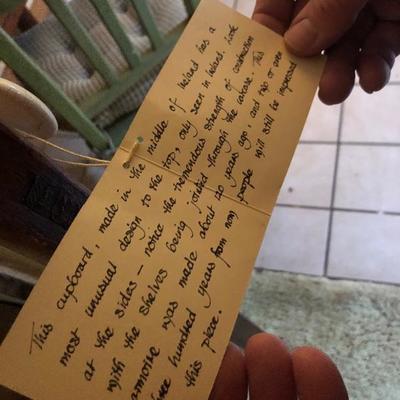 This cupboard, made in the middle of Ireland has a
most unusual design to the top, only seen in Ireland. Look
at the sides – notice the tremendous strength of construction
with the shelves being jointed through the carcase. This
armoire was made about 120 years ago, and two or even
three hundred years from now people will still be impressed
this piece.